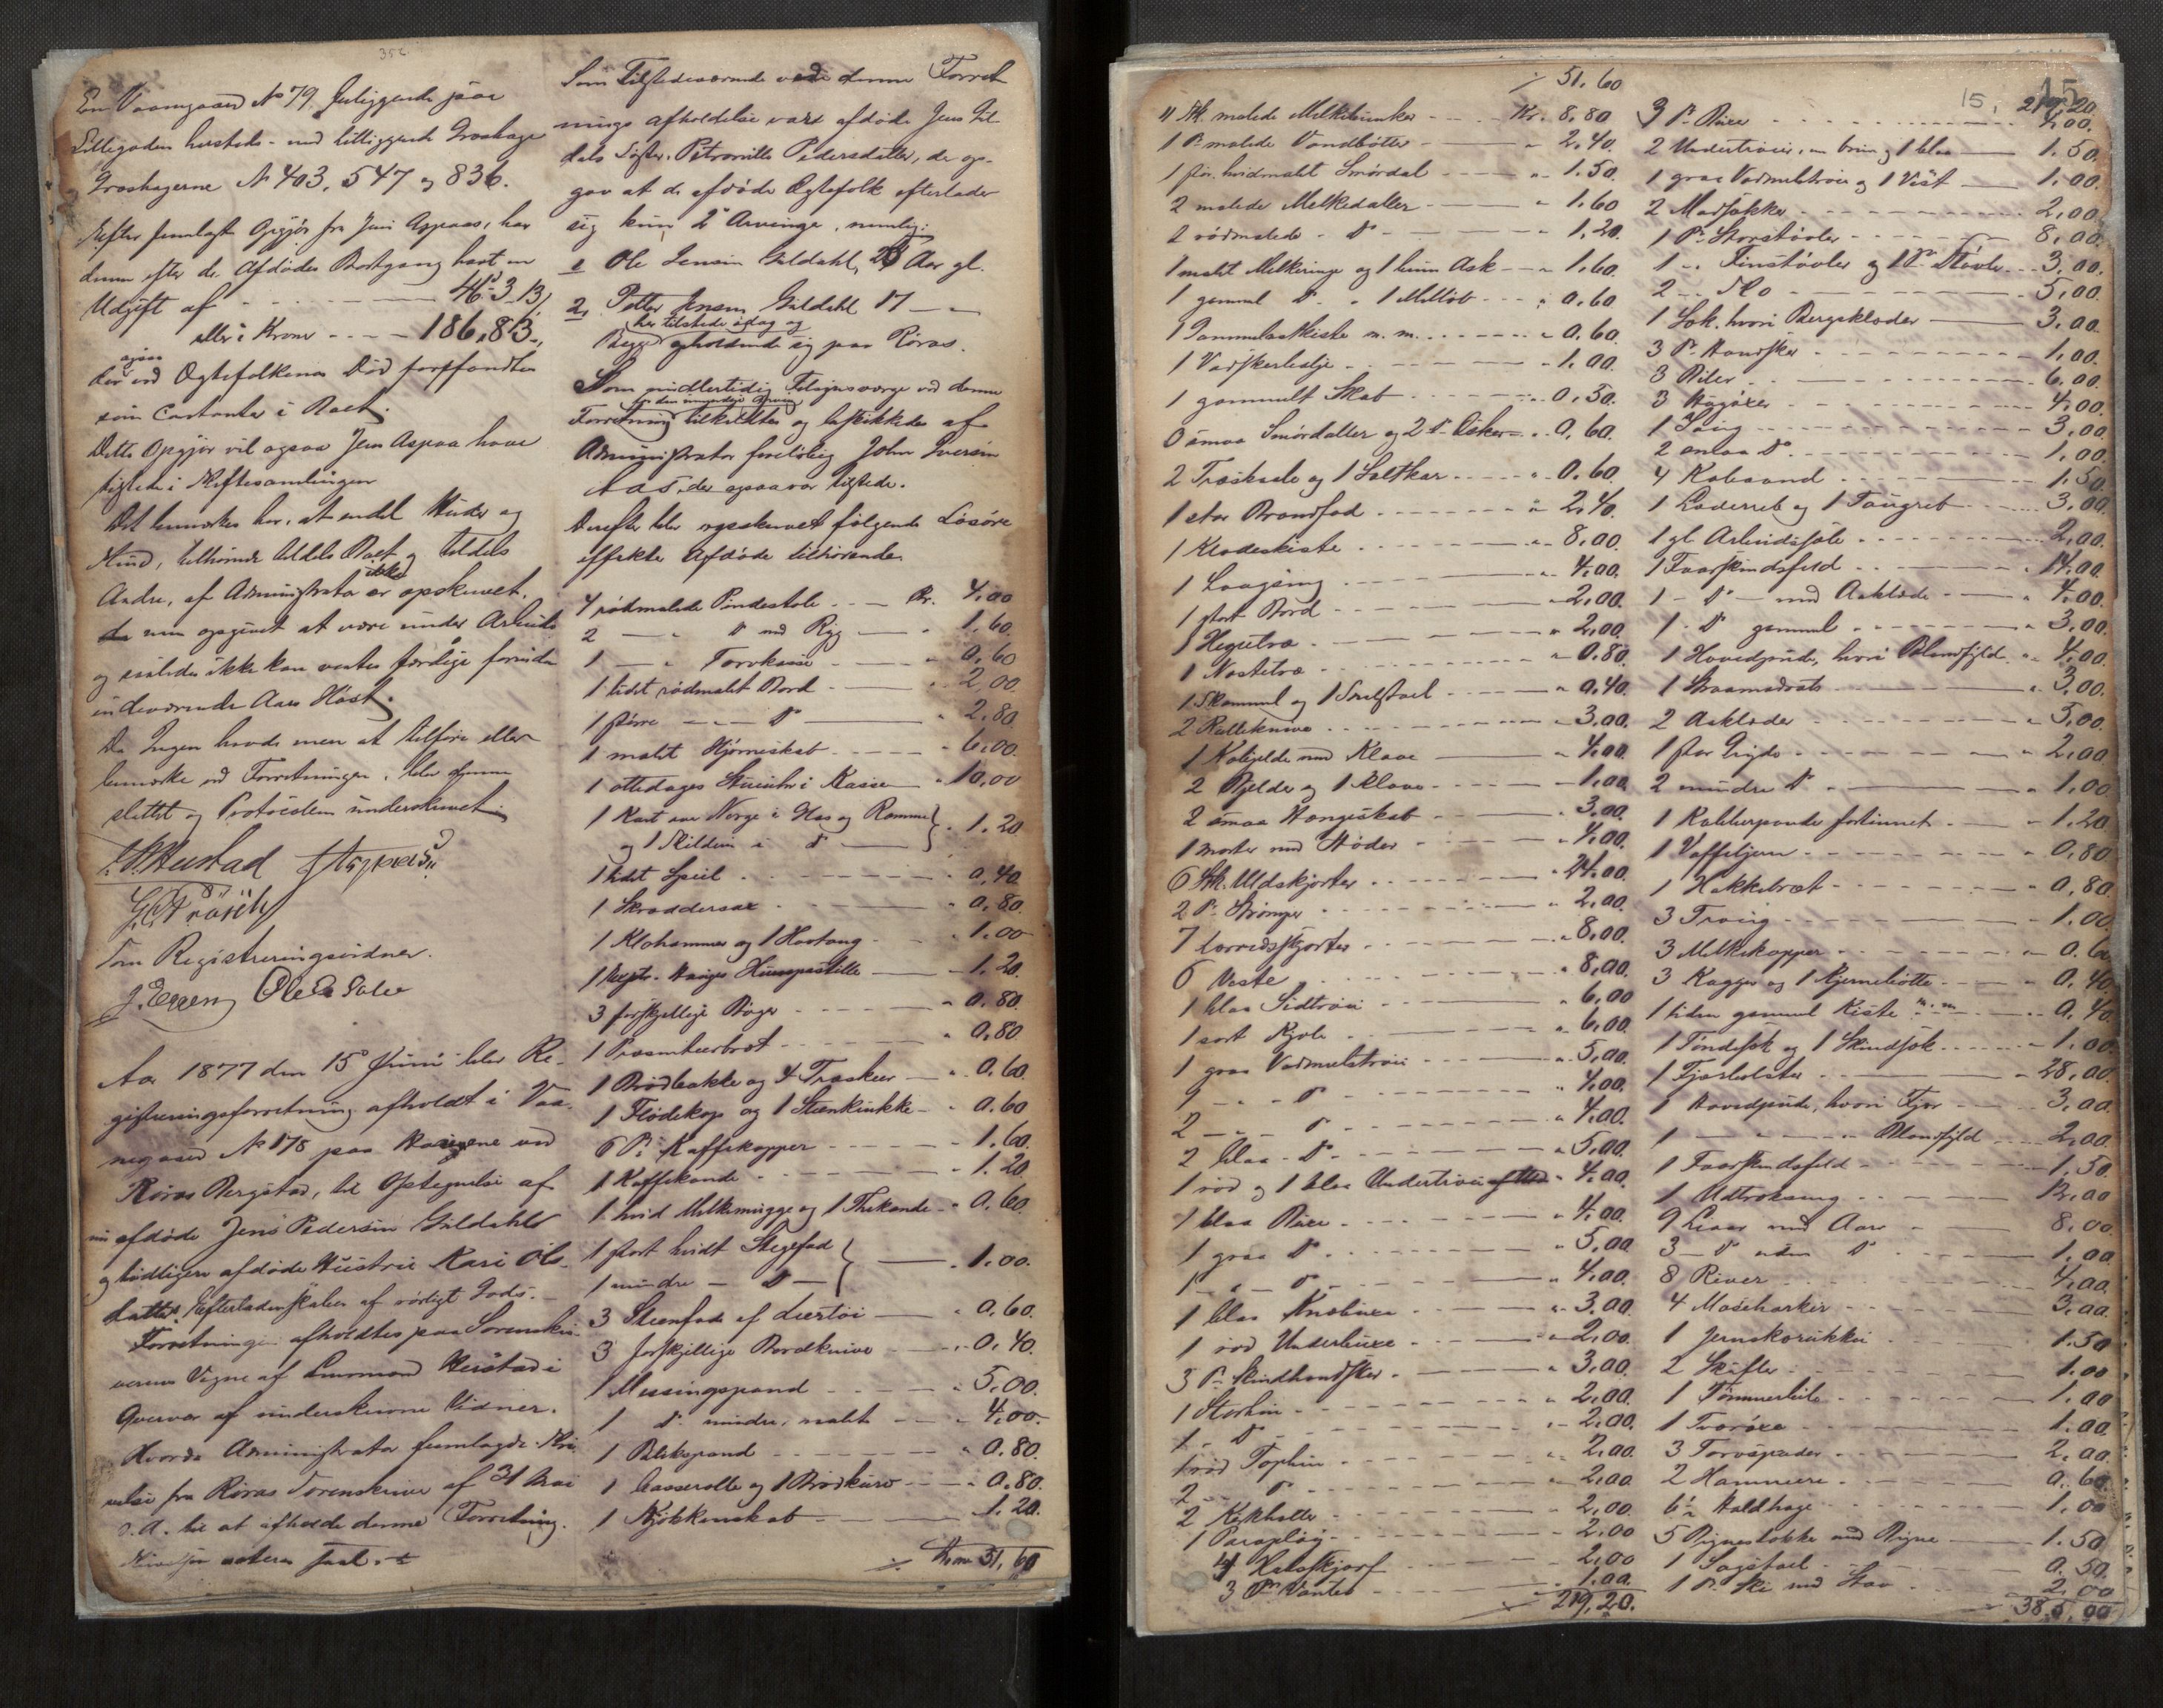 352.
En Vaaningaard No 79. beliggende paa
Lillegaden hersteds - med tilliggende Græshage
og Græshagerne No 403, 547 og 836.
Efter fremlagt Opgjør fra Jens Aspaas, har
denne efter de Afdødes Bortgang havt en
Udgift af - - - 46-3-13
eller i Kroner - - - 186,83.,
ogsaa
der ved Ægtefolkenes Død forefandtes
som Contanter i Boet.
Dette Opgjør vil ogsaa Jens Aspaa have
tiltede i Skiftesamlingen
Det bemærkes her, at endel Huder og
Skind, tilhørende tildels Boet og tildels
Andre, af Administrator er ikke opskrevet,
da som opgivet at være under Arbeide
og saaledes ikke kan ventes færdige forinden
indeværende Aars Høst.
Da Ingen havde mere at tilføre eller
bemærke ved Forretningen, blev denne
sluttet og Protocollen underskrevet.
Hustad J Aspaas
G. Prösch
Som Registreringsvidner.
J. Eggen Ole
Aar 1877 den 15de Juni blev Re-
gistreringsforretning afholdt i Vaa-
negaard No 178 paa Haugene ved
Røros Bergstad, til Optegnelse af
nu afdøde Jens Pedersen Guldahls
og tidligere afdøde Hustru Kari Ols-
datters Efterladenskaber af rørligt Gods. -
Forretningen afholdtes paa Sorenskri-
verens Vegne af Lensmand Hustad i
Overvær af underskrevne Vidner.
Hvorda Administrator fremlagde Skri-
velse fra Røros Sorenskriver af 31 Mai
d.A. til at afholde denne Forretning.
Skrivelsen noteres saal.
Som Tilstedeværende ved denne Forret
nings afholdelse vare afdøde Jens Gul
dals Søster, Petronille Pedersdatter, der op-
gav at de afdøde Ægtefolk efterlader
sig kun 2de Arvinge, nemlig:
1 Ole Jensen Guldahl, 23 Aar gl.
2, Petter Jensen Guldahl 17 - -
her tilstede idag og
Begge opholdende sig paa Röras.
Som midlertidig Tilsynsværge ved denne
for den umyndige Arving
Forretning tilkaldtes og beskikkedes af
Administrator foreløbig John Iversen
Aas, der ogsaa var tilstede.
Derefter blev opskrevet følgende Løsøre
effekter Afdøde tilhørende.
4 rødmalede Pindestole - - Kr. 4,00
2 — " Do med Ryg — " 1,60.
1 — " Torvkasse - - " 0,60
1 lidet rødmalet Bord - - " 2,00
1 større — — Do — " 2,80
1 malet Hjørneskab - - - " 6,00.
1 ottedages Stueuhr i Kasse " 10,00
1 Kart over Norge i Glas og Ramme } " 1,20
og 1 Skilderi i Do —
1 lidet Speil - - - " 0,40
1 Skræddersax - - - " 0,80.
1 Klohammer og 1 Hovtang - " 1,00
1 Huuspostille — " 1,20.
3 forskjellige Bøger - - - " 0,80.
1 Præsenteerbræt - - - " 0,80.
1 Brødbakke og 4 Træskeer — " 0,60.
1 Flødekop og 1 Steenkrukke — " 0,60
6 Pr Kaffekopper - - - " 1,60.
1 Kaffekande - - - " 1.20
1 hvid Melkemugge og 1 Thekande - " 0,60
1 stort hvidt Stegefad } — " 1,00.
1 mindre — Do —
3 Steenfade af Leertøi — " 0,60.
3 forskjellige Bordknive — " 0,40.
1 Messingpande - - - " 5,00.
1 Do mindre, malet - - " 4,00.
1 Blikspand - - - " 0.80.
1 Casserolle og 1 Brødkurv — " 0,80.
1 Kjøkkenskab - - - 1.20.
Kroner 51,60
15, 15.
51.60
11 Stk. malede Melkebunker - - - Kr. 8,80
1 Pr malede Vandbøtter — " 2,40.
1 stor hvidmalet Smørdal - - - " 1.50
2 malede Melkedaller — " 1,60
2 rødmalede - Do - - - " 1.20.
1 malet Melkeringe og 1 Ask - - " 1,60.
1 gammel Do " 1 - - " 0,60
1 Gammelostkiste m. m. - - - " 0,60.
1 Vaskerbalje - - - " 1,00.
1 gammelt Skab - - - " 0,50.
6 smaa Smørdaller og 2 Do Æsker - " 0,60.
2 Træskaale og 1 Saltkar - - - " 0,60
1 stor Brandfad - - - " 2,40.
1 Klædeskiste - - - " 8,00.
1 Langseng - - - 4,00.
1 stort Bord - - - " 2,00.
1 - - - " 2,00
1 - - - " 0,80.
1 Skammel og 1 — " 0,40.
2 - - - " 3,00.
1 Kobjelde med Klave — " 4,00
2 Bjelder og 1 Klave - - - 1,00
2 smaa Hængeskab - - - " 3.00.
1 Morter med Støder - - - " 4,00.
6 Stk. Uldskjorter - - - " 24,00.
2 Pr Strømper - - - " 2,00
7 Lerredsskjorter - - - " 8,00.
6 Veste - - - " 8,00.
1 blaa Sidtrøie - - - " 6,00
1 sort Kjole - - - " 6,00.
1 graa Vadmelstrøie - - - " 5,00.
1 - " - Do - - - " 4,00.
2 - " - Do - - - " 4,00.
2 blaa - Do - - - " 5,00.
1 rød og 1 blaa Undertrøie " 4,00.
1 blaa Buxe - - - " 4,00.
1 graa Do - - - " 5,00
1 - " - Do - - - " 4,00.
1 blaa Knæbuxe - - - " 3.00.
1 rød Underbuxe - - - " 2,00.
3 Pr Skindhandsker - - - " 3,00.
1 - - - " 2,00.
1 - Do - - - " 2,00.
1 rød Tophue - - - " 2,00.
2 - - Do - - - " 2,00
2 - - - 2,00.
1 Paraply - - - 2,00
4 Halsskjerf - - - 2,00
3 Pr Vanter - - - 1.00.
219,20.
219,20.
3 Pr Buxer - - - 4,00.
2 Undertrøier, en brun og 1 blaa — 1.50
1 graa Vadmelstrøie og 1 Vest — 1,00.
2 Madsække - - - 2,00.
1 Pr Storstøvler - - - 8,00
1 - " Finstøvler og 1 Pr Støvle - 3,00.
2 - " Sko - - - 5,00
1 Sæk, hvori Bergsklæder — 3,00
3 Pr Handsker - - - 1,00.
3 Biler - - - 6,00.
3 Hugøxer - - - 4,00.
1 Saug - - - 3,00
2 smaa Do - - - 1,00.
4 Kobaand - - - 1.50
1 Læderreb og 1 Taugreb - - - 3,00.
1 gl Arbeidssæle - - - 2,00.
1 Faarskindsfeld - - - 14,00.
1 - Do - med Aaklæde - - - 4,00.
1 - Do gammel - - - 3,00.
1 Hovedpude, hvori Blandfyld - " 4,00
1 Straamadrats - - - " 3,00.
2 Aaklæder - - - " 5,00
1 stor Gryde - - - " 2,00
2 mindre Do - - - " 1,00
1 Kobberpande fortinnet - - - 1.20
1 Vaffeljern - - - " 0,80
1 Hakkebræt - - - " 0,80.
3 Traug - - - 1.00
3 Melkekopper - - - " 0.60
3 Kagger og 1 Kjernebøtte - - - 0,40.
1 liden gammel Kiste m.m - - - 0,40
1 Tøndesæk og 1 Skindsæk - - - 1,00.
1 Fjærbolster - - - 28,00.
1 Hovedpude, hvori Fjær - - - 3,00.
1 — " — " — Blandfyld - - - 2,00
1 Faarskindsfeld - - - 1.50
1 Udtrækseng - - - 12,00
9 Ljaaer med - - - 8,00
3 - Do uden Do - - - 1,00
8 River - - - 4,00.
4 Moseharker - - - 3,00
1 - - - 1.50
2 Skufler - - - 1.00
1 Tømmerbile - - - 1,00
1 Tværøxe - - - 1.00.
3 Torvspader - - - 2,00
2 Hammere - - - 0,60
6 - - - 1,00
5 med - - - 1.50
1 Sagblad - - - 0,50.
1 Pr Ski med Stav - - - 2,00
385,00